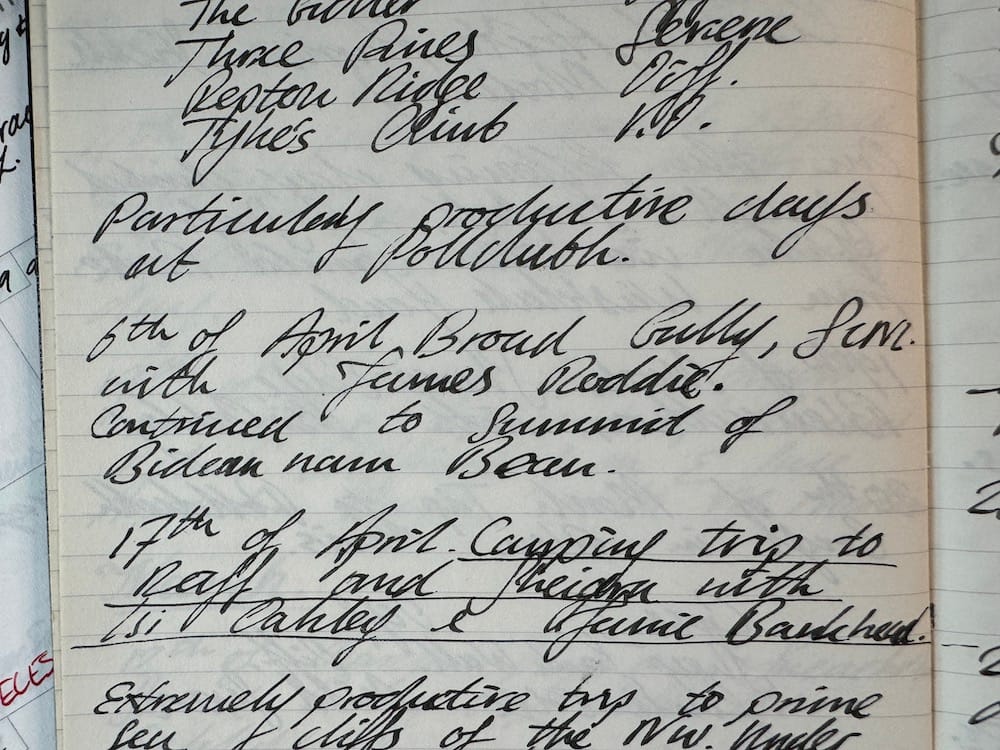 The Gutter
Three Pines Severe
Repton Ridge Diff.
Tyke's Climb V.D.
Particularly productive days
at Polldubh.
6th of April Broad Gully,
with James Roddie.
Continued to Summit of
Bidean nam Bean.
17th of April. Camping trip to
Reiff and Sheigra with
Isi Oakley & Jamie Bankhead.
Extremely productive trip to prime
Sea cliffs of the NW. Under
ECES